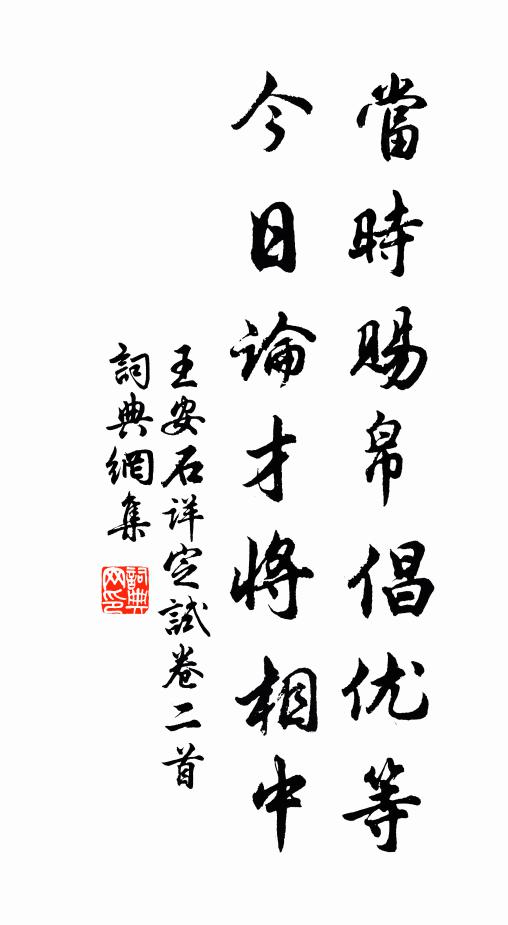 當時賜帛倡优等
今日論才將相中
王安石详定試卷二首
詞典網集
詞典网印